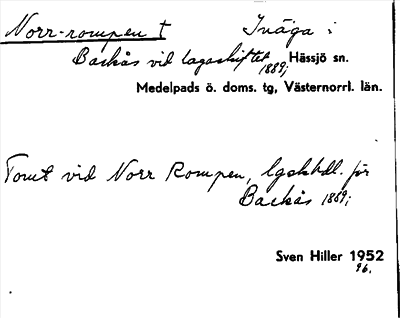 Norr-rompen t Iväga i
Backås vid lagaskiftet 1889; Hässjö sn.
Medelpads ö. doms. tg, Västernorrl. län.
Tomt vid Norr Rompen, lgskhdl. för
Backås 1889;
Sven Hiller 1952
96.